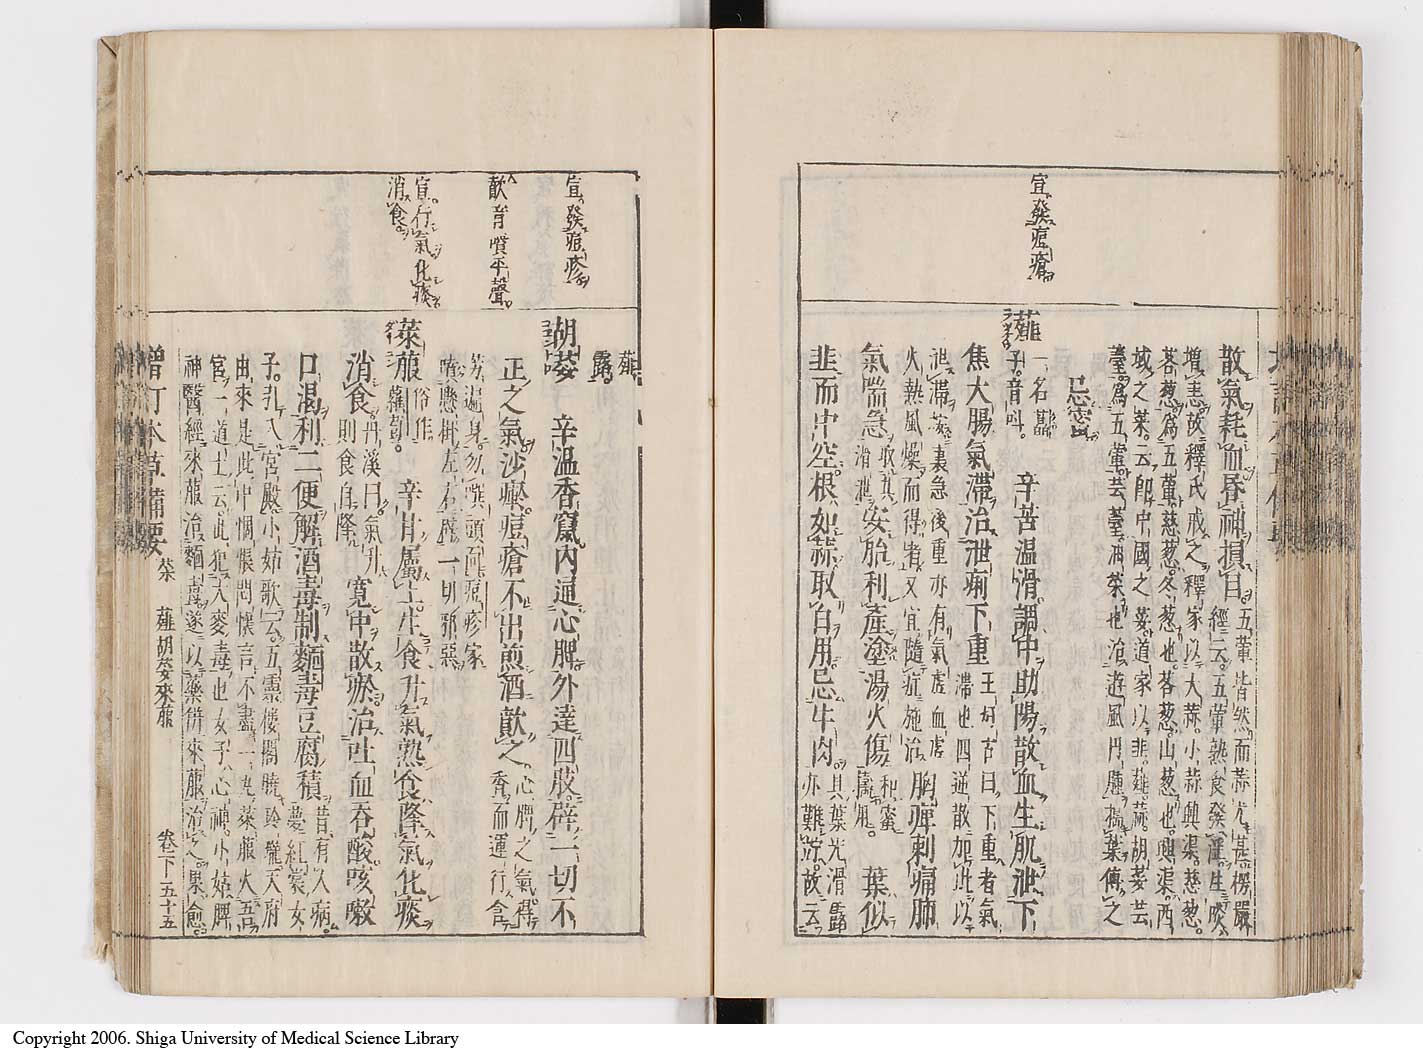 宜發痘瘡
散氣耗血昏神損目。五葷皆然而蒜尤甚楞嚴
經云。五葷熟食發淫。生啖
增恚。故釋氏戒之釋家以大蒜。小蒜興渠。慈葱。
茖葱爲五葷慈葱。冬葱也。茖葱。山葱也。興渠。西
域之菜。云即中國之荽。道家以韭。薤。蒜。胡荽芸
薹。爲五葷。芸薹。油菜也。治遊風丹腫。搗葉傅之
忌蜜
薤
一名藠
子。音叫。
辛苦温滑。調中助陽。散血生肌。泄下
焦大腸氣滯。治泄痢下重
王好古曰。下重者氣
滯也。四逆散加此以
泄滯。按裏急後重。亦有氣虛血虛
火熱風燥。而得者。又宜隨症施治
胸痺刺痛。肺
氣喘急。
取其
滑泄
安胎利產。塗湯火傷
和蜜
擣用。
葉似
韭而中空。根如蒜。取白用。忌牛肉。
其葉光滑露
亦難竚。故云
宜發痘疹
歕音噴平聲。
宣行氣化痰
消食
薤
露。
胡荽
辛温香竄。内通心脾。外達四肢。辟一切不
正之氣。沙瘮。痘瘡不出。煎酒歕之。
心脾之氣。得
香而運行。含
歕遍身。勿噀頭面。痘疹家
懸掛左右。辟一切邪惡
萊菔
俗作
蘿蔔。
辛甘屬土。生食升氣。熟食降氣。化痰
消食。
丹溪曰。氣升
則食自降
寬中散瘀。治吐血。吞酸咳嗽
口渴。利二便。解酒毒。制麵毒。豆腐積
昔有人病。
夢紅裳女
子。引入宮殿。小姑歌云。五靈樓閣曉玲瓏。天府
由來是此中。惆悵悶懷言不盡。一丸萊菔火吾
宮。一道士云。此犯大麥毒也。女子心神。小姑脾
神。醫經萊菔治麵毒。遂以藥併萊菔治之。果愈。
增訂本草備要
菜
薤胡荽萊菔
卷二下五十五
Copyright 2006. Shiga University of Medical Science Library